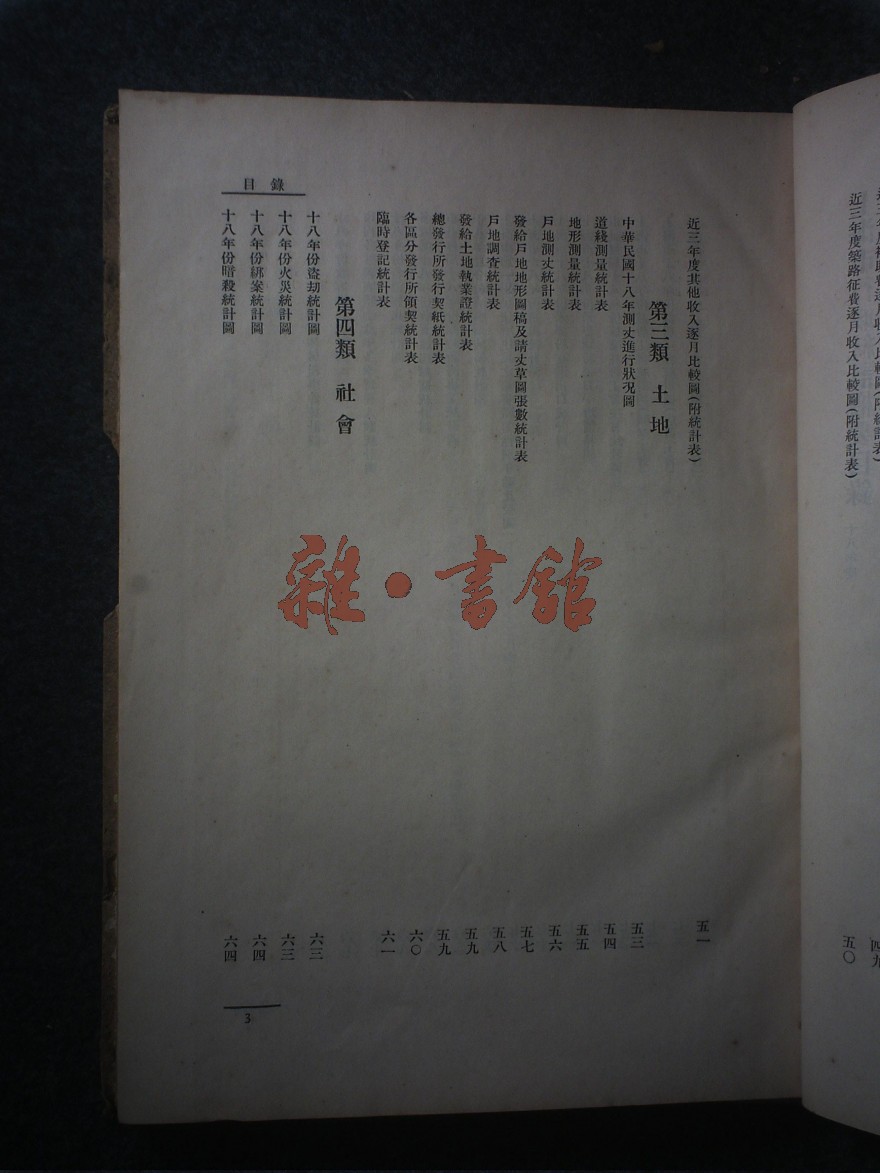 近三年度築路征費逐月收入比較圖(附統計表)
五〇
目錄
近三年度其他收入逐月比較圖(附統計表)
五一
第三類 土地
中華民國十八年測丈進行狀況圖
五三
道綫測量統計表
五四
地形測量統計表
五五
戶地測丈統計表
五六
發給戶地地形圖稿及請丈草圖張數統計表
五七
戶地調查統計表
五八
發給土地執業證統計表
五九
總發行所發行契紙統計表
五九
各區分發行所領契統計表
六〇
臨時登記統計表
六一
第四類 社會
十八年份盜劫統計圖
六三
十八年份火災統計圖
六三
十八年份綁案統計圖
六四
十八年份暗殺統計圖
六四
3
雜·書館